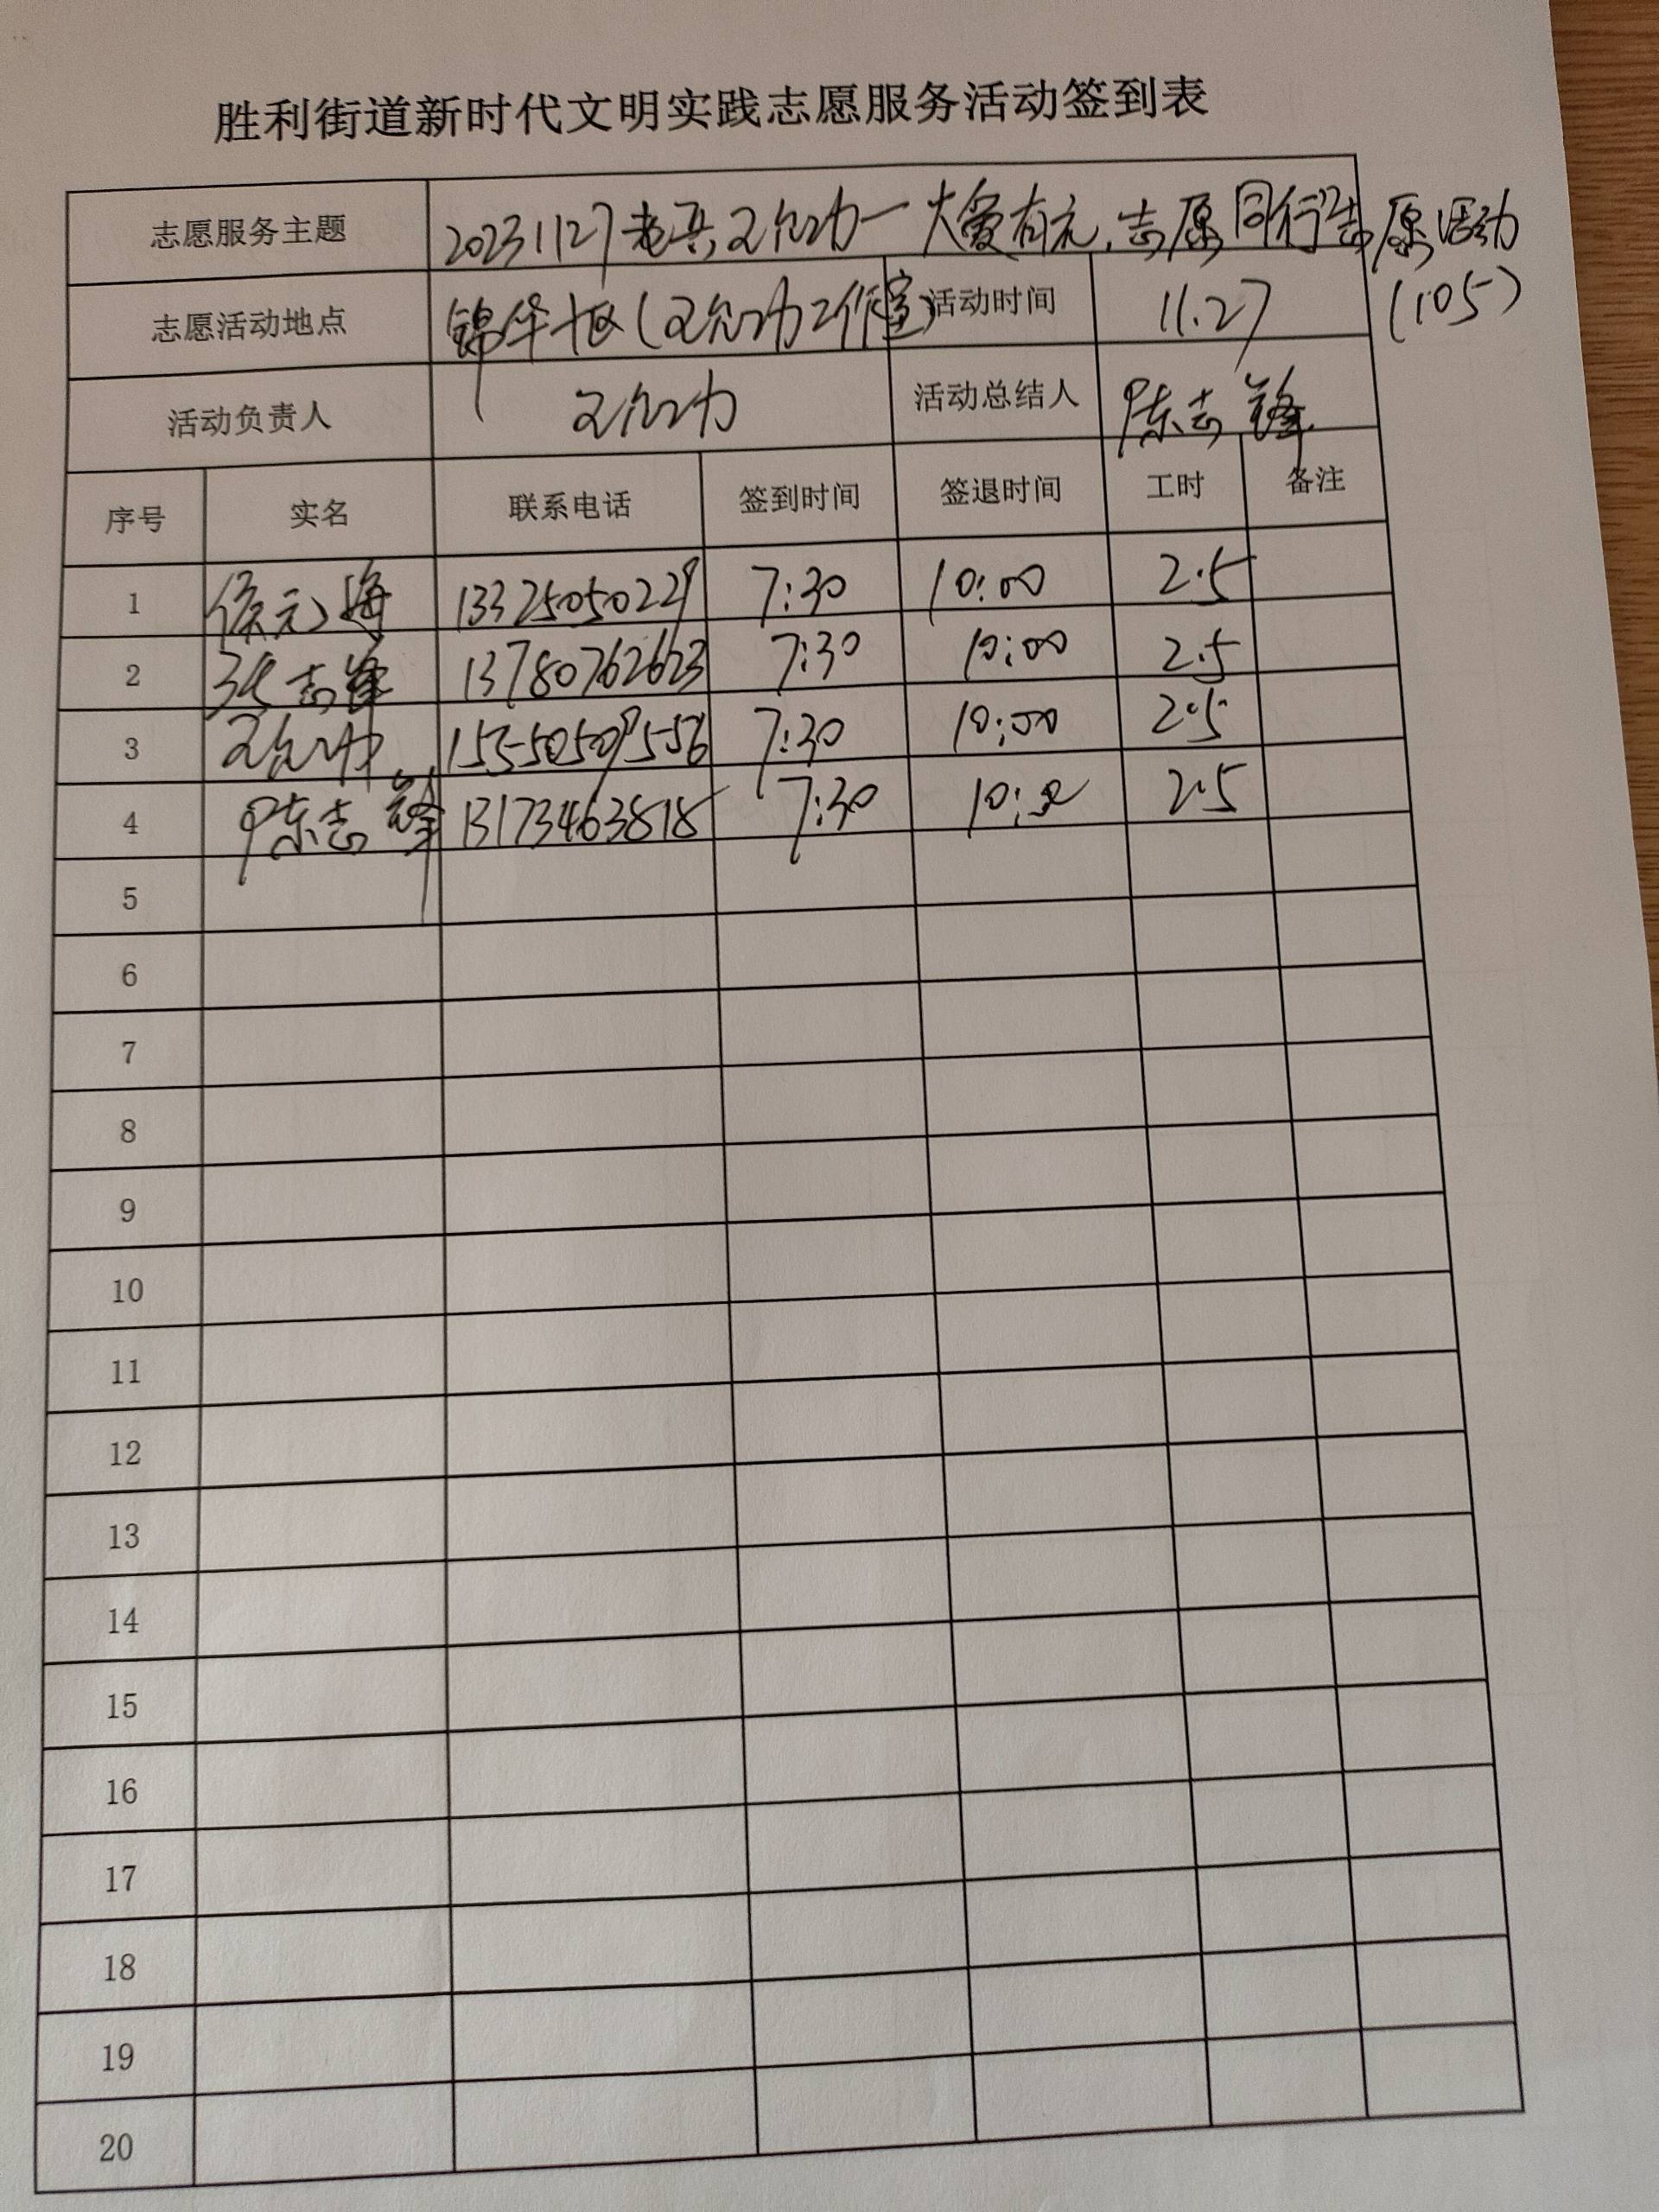 胜利街道新时代文明实践志愿服务活动签到表
志愿服务主题 20231127老兵文允功一大爱有元,志愿同行志愿活动
志愿活动地点 锦华 (文允功工作室) 活动时间 11.27 (105)
活动负责人 文允功 活动总结人 陈志锋
序号 实名 联系电话 签到时间 签退时间 工时 备注
1 侯元海 13325050229 7:30 10:00 2.5
2 张志锋 13780762623 7:30 10:00 2.5
3 文允功 15350509556 7:30 10:00 2.5
4 陈志锋 13173463818 7:30 10:00 2.5
5
6
7
8
9
10
11
12
13
14
15
16
17
18
19
20